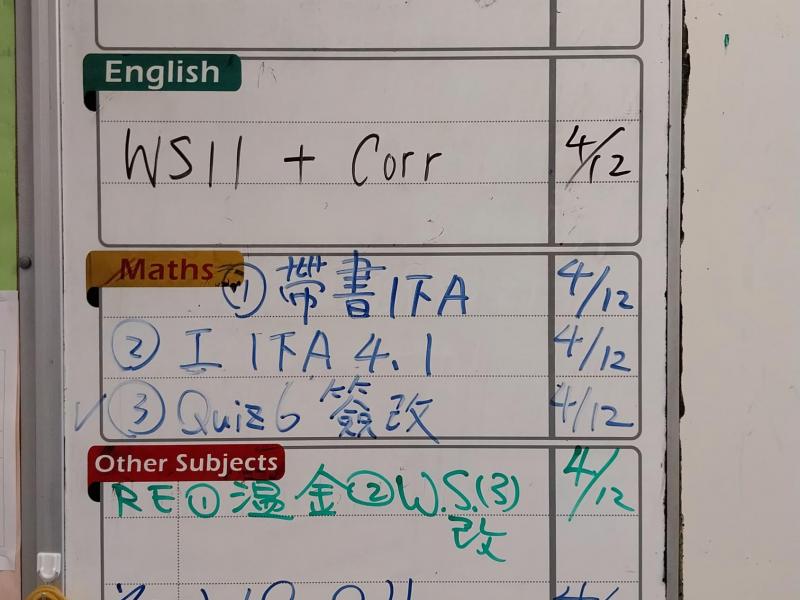 English
WS11 + Corr 4/12
Maths
① 帶書1下A 4/12
② 工 1下A 4.1 4/12
✓ ③ Quiz 6 簽改 4/12
Other Subjects
RE ① 溫金 ② W.S.(3) 4/12
改